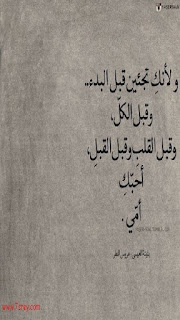 و لأنكِ تجئين قبل البدء..
وقبل الكلّ،
وقبل القلبِ وقبل القبلِ،
أحبّكِ
أمّي.
www.7zney.com